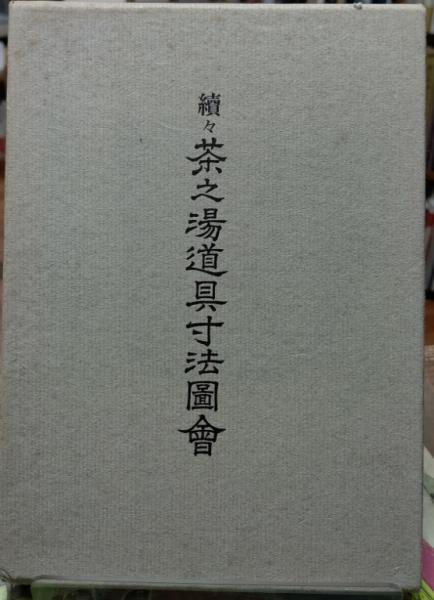 續々茶之湯道具寸法圖會